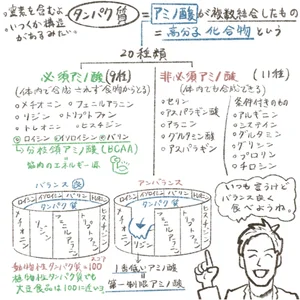 窒素を含むよ
いくつか構造
があるみたい。
タンパク質 = アミノ酸が複数結合したもの
= 高分子化合物という
20種類
必須アミノ酸(9種)
(体内で合成されず食物からとる)
・メチオニン ・フェニルアラニン
・リジン ・トリプトファン
・トレオニン ・ヒスチジン
ロイシン イソロイシン バリン
分枝鎖アミノ酸(BCAA)
筋肉のエネルギー源
非必須アミノ酸 (11種)
(体内でも合成できる)
・セリン
・アスパラギン酸
・アラニン
・グルタミン酸
・アスパラギン
条件付きのもの
・アルギニン
・システイン
・グルタミン
・グリシン
・プロリン
・チロシン
バランス
ロイシン イソロイシン バリン
タンパク質
メチオニン
リジン
フェニルアラニン
トリプトファン
トレオニン
ヒスチジン
アンバランス
ロイシン イソロイシン バリン
タンパク質
リジン
ヒスチジン
動物性タンパク質=100
植物性タンパク質でも
大豆食品は100に近い
1番低いアミノ酸
=
第一制限アミノ酸
いつも言うけど
バランス良く
食べようね。